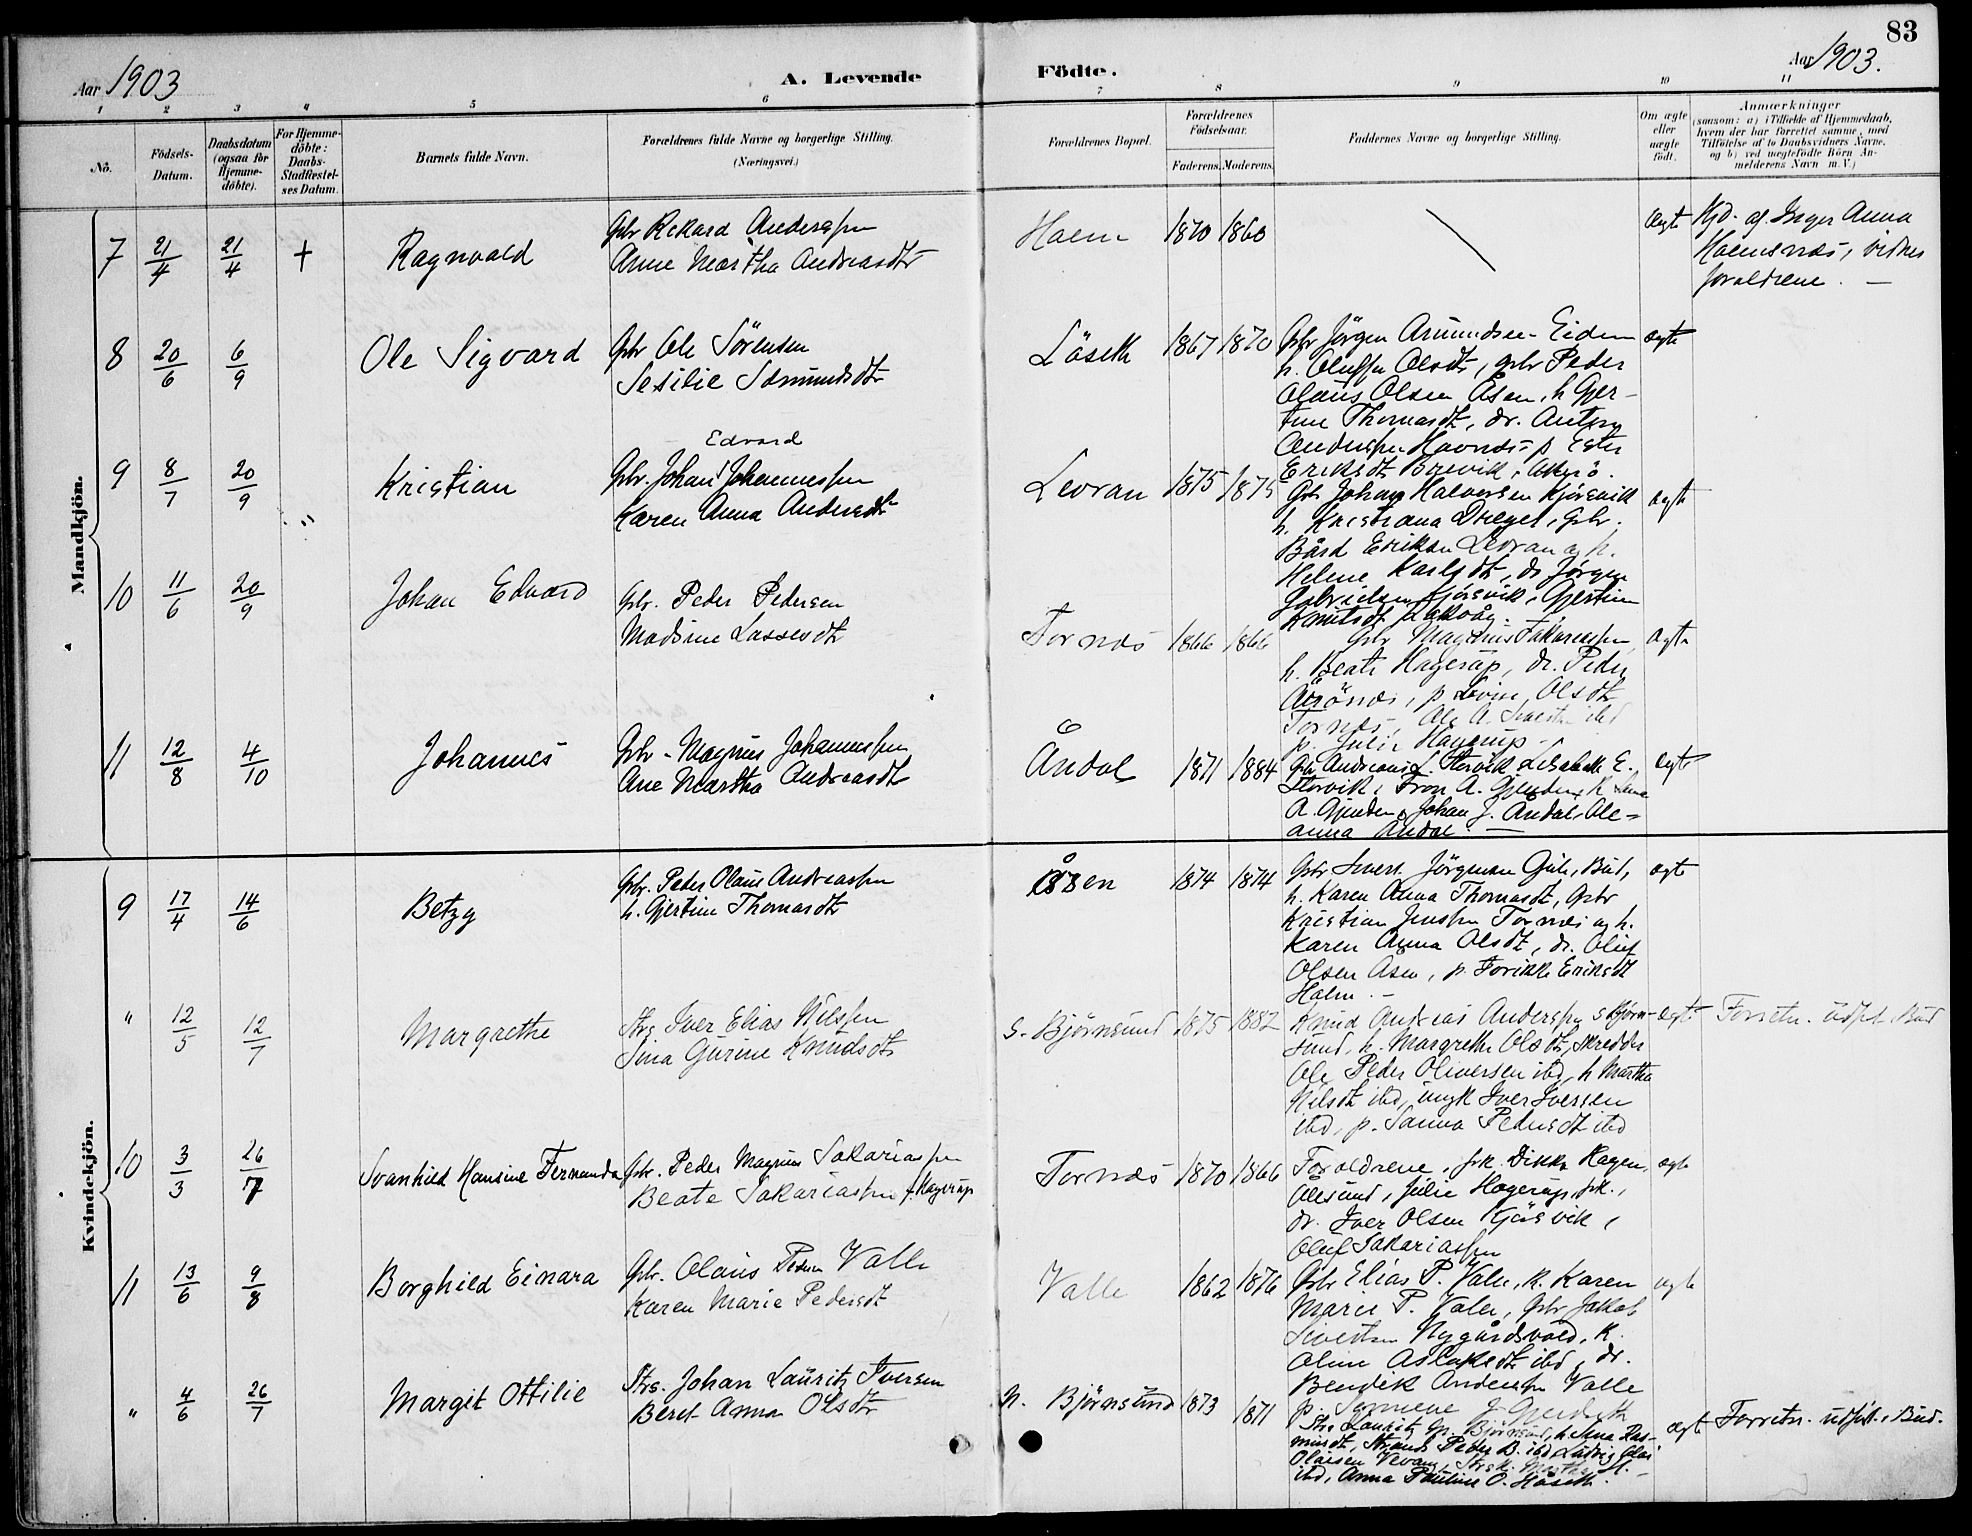 83
Aar 1903
A. Levende
Födte.
Aar 1903.
1 2 3 4 5 6 7 8 9 10 11
No.
Födsels-
Datum.
Daabsdatum
(ogsaa for
Hjemme-
döbte).
For Hjemme-
döbte:
Daabs-
Stadfæstel-
ses Datum.
Barnets fulde Navn.
Forældrenes fulde Navne og borgerlige Stilling.
(Næringsvei.)
Forældrenes Bopæl.
Forældrenes
Födselsaar.
Faderens. Moderens.
Faddernes Navne og borgerlige Stilling.
Om ægte
eller
uægte
födt.
Anmærkninger
(saasom: a) i Tilfælde af Hjemmedaab,
hvem der har forrettet samme, med
Tilföielse af to Daabsvidners Navne,
og b) ved uægtefödte Börn An-
melderens Navn m. V.)
Mandkjön.
7 21/4 21/4 + Ragnvald
Gbr Rikard Anderssen
Anne Martha Andreasdtr
Holm 1870 1860
ægte
Hjd. af Inger Anna
Holmsnæs, vidner
forældrene. —
8 20/6 6/9 Ole Sigvard
Gbr Ole Sörensen
Sesilie Samundsdtr
Löseth 1867 1870
Gbr Jörgen Amundsen Eiden
h. Oluffa Olsdtr, gbr Peder
Olaus Olsen Åsen, h Gjer-
tine Thomasdt, dr. Anton
Anderssen Havnæs, p Ester
Eriksdt Brevik, Akerö.
ægte
9 8/7 20/9 Kristian
Edvard
Gbr. Johan Johannessen
Karen Anna Andersdtr
Levran 1875 1875
Gbr Johan Halvorsen Kjörsvik
h. Kristiana Drege, Gbr.
Bård Eriksen Levran og h.
Helene Karlsdt, dr Jörgen
Gabrielsen Kjörsvik, Gjertine
Knutsdt
ægte
10 11/6 20/9 Johan Edvard
Gbr. Peder Pedersen
Madsine Lassesdtr
Tornæs 1866 1866
Gbr Magnus Sakariassen,
h. Beate Hagerup, dr. Peder
p Lovise Olsdt
Tornæs, Ole A. ibd
p. Julie Hagerup
ægte
11 12/8 4/10 Johannes
Gbr. Magnus Johannessen
Ane Martha Andreasdtr
Åndal 1871 1884
Gbr Andreas L. Storvik, Lisabeth E.
Storvik, Tron A. Gjenden, h
A. Gjenden, Johan J. Åndal, Ole-
anna Åndal. —
ægte
Kvindekjön.
9 17/4 14/6 Betzy
Gbr. Peder Olaus Andreassen
h. Gjertine Thomasdtr
Åsen 1874 1874
Gbr Sivert Jörgensen Gule, Bud,
h. Karen Anna Thomasdt, Gbr
Kristian Jenssen Tornæs og h.
Karen Anna Olsdt, dr. Oluf
Olsen Åsen, p. Eriksdt
Holm. —
ægte
" 12/5 12/7 Margrethe
Strs Iver Elias Nilssen
Sina Gurine Knudsdtr
S. Björnsund 1875 1882
Knud Andreas Anderssen S Björn-
sund, h. Margrethe Olsdt, skredder
Ole Peder Oliversen ibd, h Martha
Nilsdt ibd, ungk Iver Iversen
ibd, p. Sanna Pedersdt ibd
ægte
Forretn. udført i Bud
10 3/3 26/7 Svanhild Hansine Fernanda
Gbr. Peder Magnus Sakariassen
Beate Sakariassen f. Hagerup
Tornæs 1870 1866
Forældrene, frk. Dikka Hagen,
Ålesund, Julie Hagerup, frk.,
dr. Iver Olsen Kjörsvik,
Oluf Sakariassen
ægte
11 13/6 9/8 Borghild Einara
Gbr. Olaus Peders Valle
Karen Marie Pedersdt
Valle 1862 1876
Gbr Elias P. Valle, k. Karen
Marie P. Valle, Gbr Jakob
Sivertsen Nygårdsvold, k.
Oline Aslaksdt ibd, dr.
Bendik Anderssen Valle
p.
ægte
" 4/6 26/7 Margit Ottilie
Strs. Johan Lauritz Iversen
Beret Anna Olsdtr
N. Björnsund 1873 1871
Strs Lauritz Björnsund, h Ras-
musdt, Peder B. ibd Ludvig Olai
Olaisen
ibd, Anna Pauline O. Haseth.
ægte
Forretn. udført i Bud.